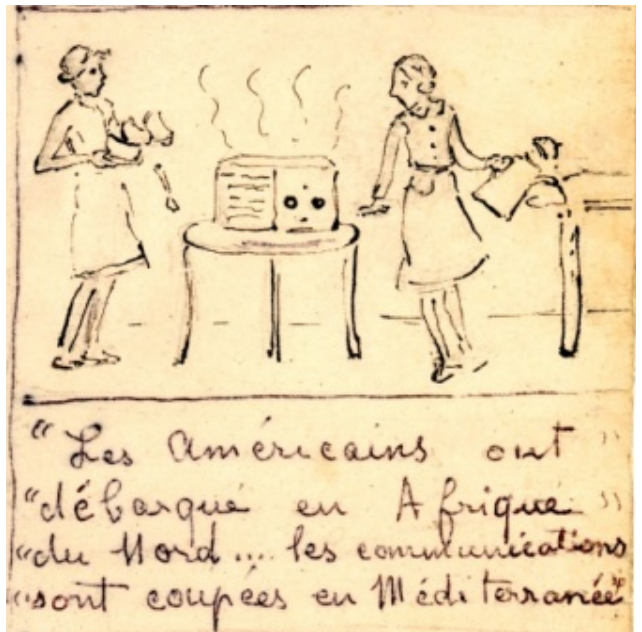 "Les Américains ont "
"débarqué en Afrique "
"du Nord.... les communications
"sont coupées en Méditerranée"